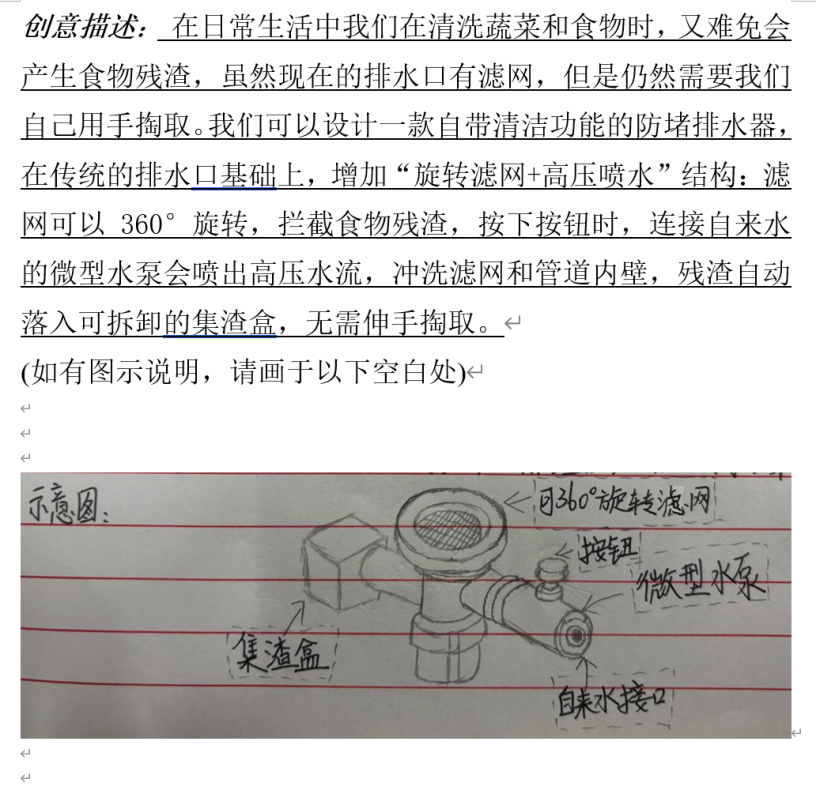 创意描述：在日常生活中我们在清洗蔬菜和食物时，又难免会
产生食物残渣，虽然现在的排水口有滤网，但是仍然需要我们
自己用手掏取。我们可以设计一款自带清洁功能的防堵排水器，
在传统的排水口基础上，增加“旋转滤网+高压喷水”结构：滤
网可以 360°旋转，拦截食物残渣，按下按钮时，连接自来水
的微型水泵会喷出高压水流，冲洗滤网和管道内壁，残渣自动
落入可拆卸的集渣盒，无需伸手掏取。
(如有图示说明，请画于以下空白处)
示意图：
可360°旋转滤网
按钮
微型水泵
集渣盒
自来水接口